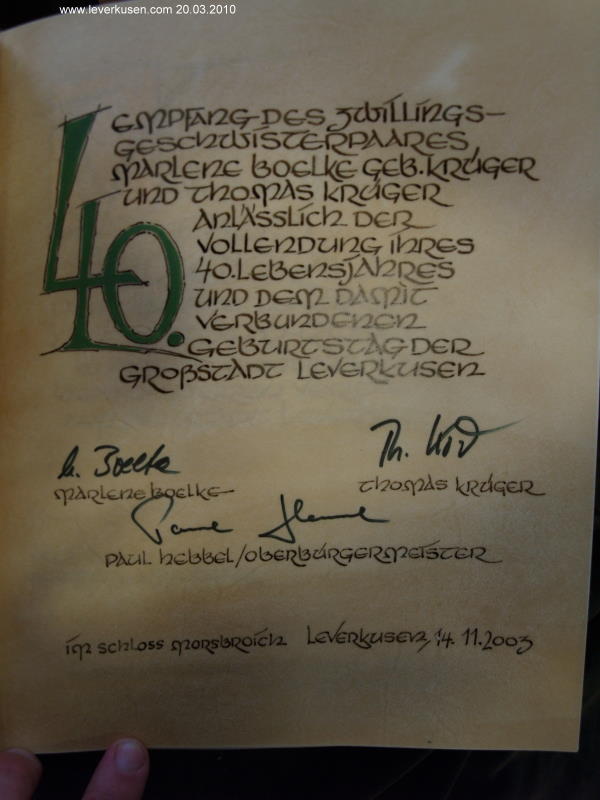 www.leverkusen.com 20.03.2010
EMPFANG DES ZWILLINGS-
GESCHWISTERPAARES,
MARLENE BOELKE GEB. KRÜGER
UND THOMAS KRÜGER
ANLÄSSLICH DER
VOLLENDUNG IHRES
40. LEBENSJAHRES
UND DEM DAMIT
VERBUNDENEN
40. GEBURTSTAG DER
GROßSTADT LEVERKUSEN
M. Boelke Th. Krü
MARLENE BOELKE THOMAS KRÜGER
Paul Hebbel
PAUL HEBBEL/OBERBÜRGERMEISTER
IM SCHLOSS MORSBROICH LEVERKUSEN, 14.11.2003